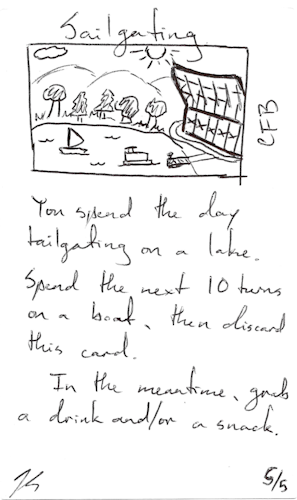 Sailgating
CFB
You spend the day
tailgating on a lake.
Spend the next 10 turns
on a boat, then discard
this card.
In the meantime, grab
a drink and/or a snack.
5/5